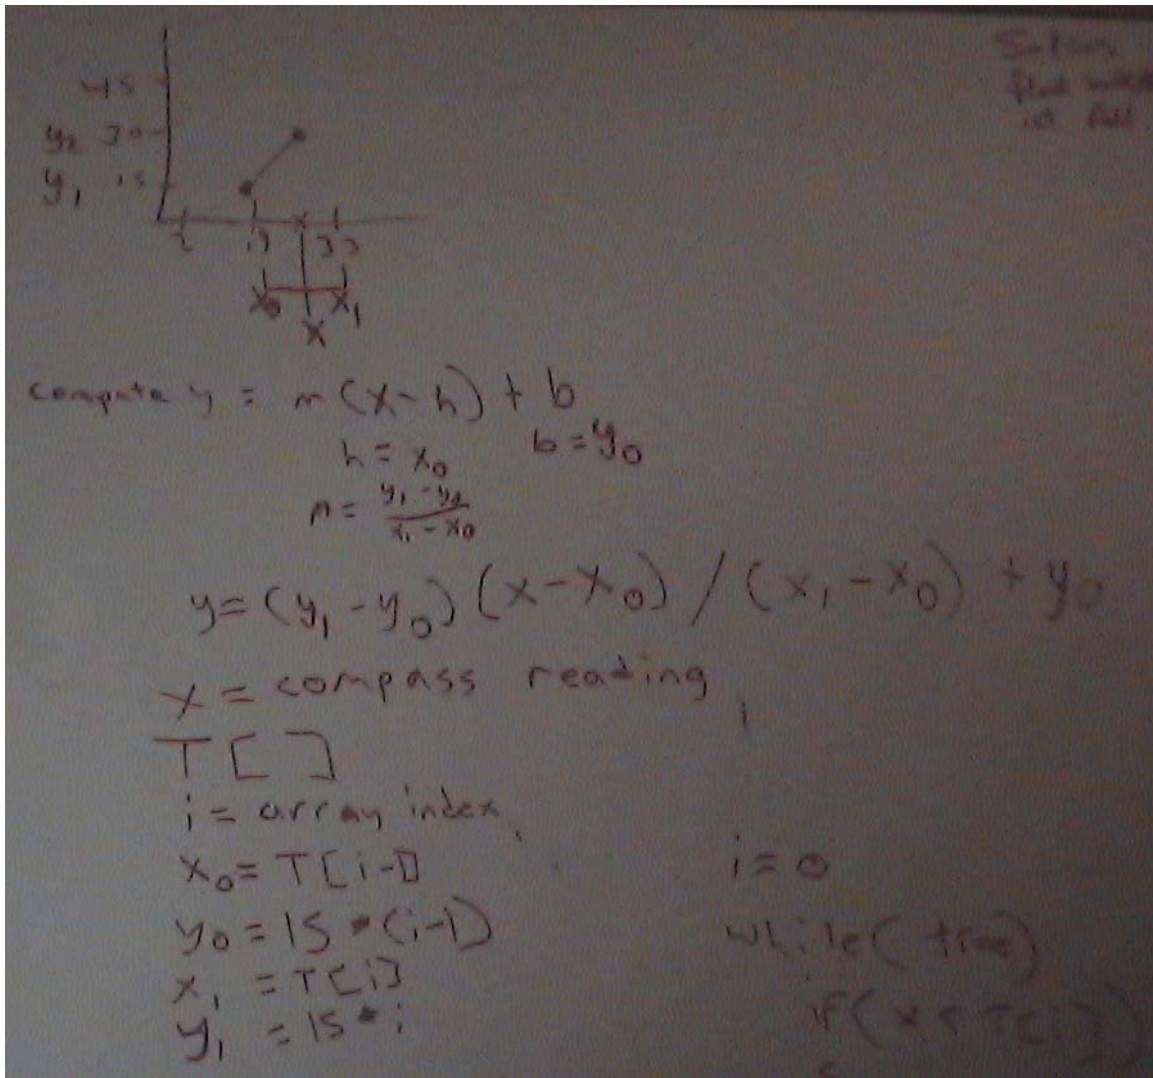 45
y₂ 30
y₁ 15
2 17 33
x₀ x₁
x
compute y = m(x-h) + b
h = x₀ b = y₀
m = y₁ - y₀ / x₁ - x₀
y = (y₁ - y₀)(x - x₀) / (x₁ - x₀) + y₀
x = compass reading
T[ ]
i = array index
x₀ = T[i-1] i = 0
y₀ = 15 * (i-1) while(true)
x₁ = T[i]
y₁ = 15 * i if(x < T[i])